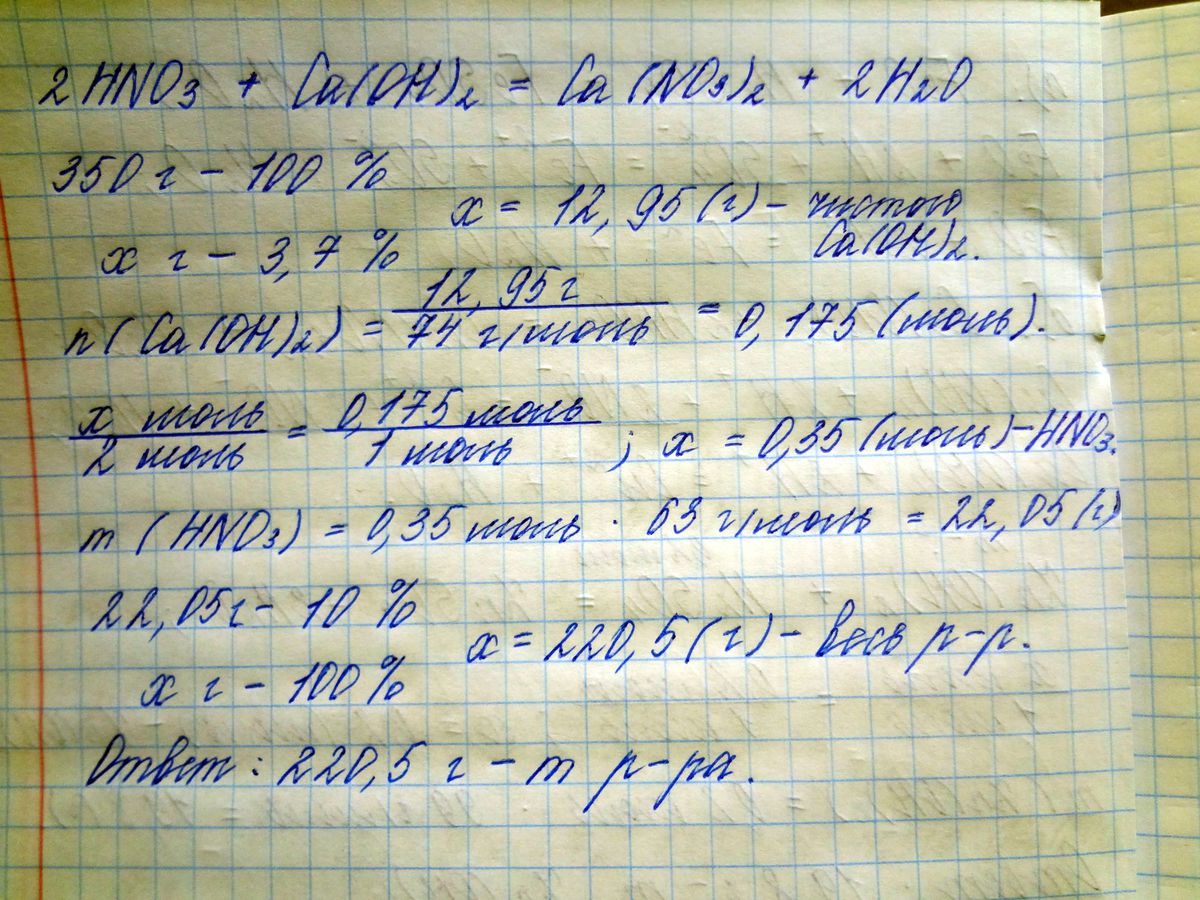 2HNO₃ + Ca(OH)₂ = Ca(NO₃)₂ + 2H₂O
350 г – 100 %
x г – 3,7 %
x = 12,95 (г) – чистого
Ca(OH)₂.
n(Ca(OH)₂) = 12,95 г / 74 г/моль = 0,175 (моль).
x моль / 2 моль = 0,175 моль / 1 моль ; x = 0,35 (моль) – HNO₃.
m (HNO₃) = 0,35 моль · 63 г/моль = 22,05 (г)
22,05 г – 10 %
x г – 100 %
x = 220,5 (г) – весь р-р.
Ответ: 220,5 г – m р-ра.